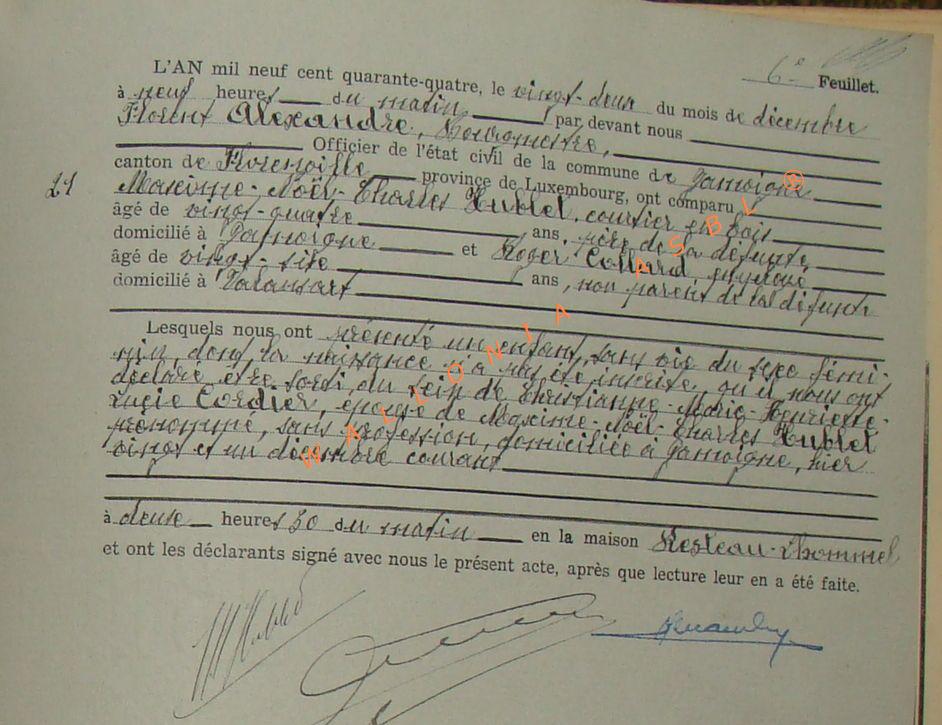 6e Feuillet.
L'AN mil neuf cent quarante-quatre, le vingt-deux du mois de décembre
à neuf heures du matin par devant nous
Florent Alexandre, Bourgmestre,
Officier de l'état civil de la commune de Jamoigne
canton de Florenville province de Luxembourg, ont comparu
21
Maxime-Noël-Charles Hublet, courtier en bois
âgé de vingt-quatre ans, père de la défunte
domicilié à Jamoigne et Roger Collard employé
âgé de vingt-six ans, non parent de la défunte
domicilié à Valansart
Lesquels nous ont présenté un enfant, sans vie du sexe fémi-
nin, dont la naissance n'a pas été inscrite, qu'il nous ont
déclaré, être sorti du sein de Christianne-Marie-Henriette-
Lucie Cordier, épouse de Maxime-Noël-Charles Hublet
prénommé, sans profession, domiciliée à Jamoigne, hier
vingt et un décembre courant
à deuxe heures 30 du matin en la maison Resteau-Lhommel
et ont les déclarants signé avec nous le présent acte, après que lecture leur en a été faite.
WALLONIA ASBL ®